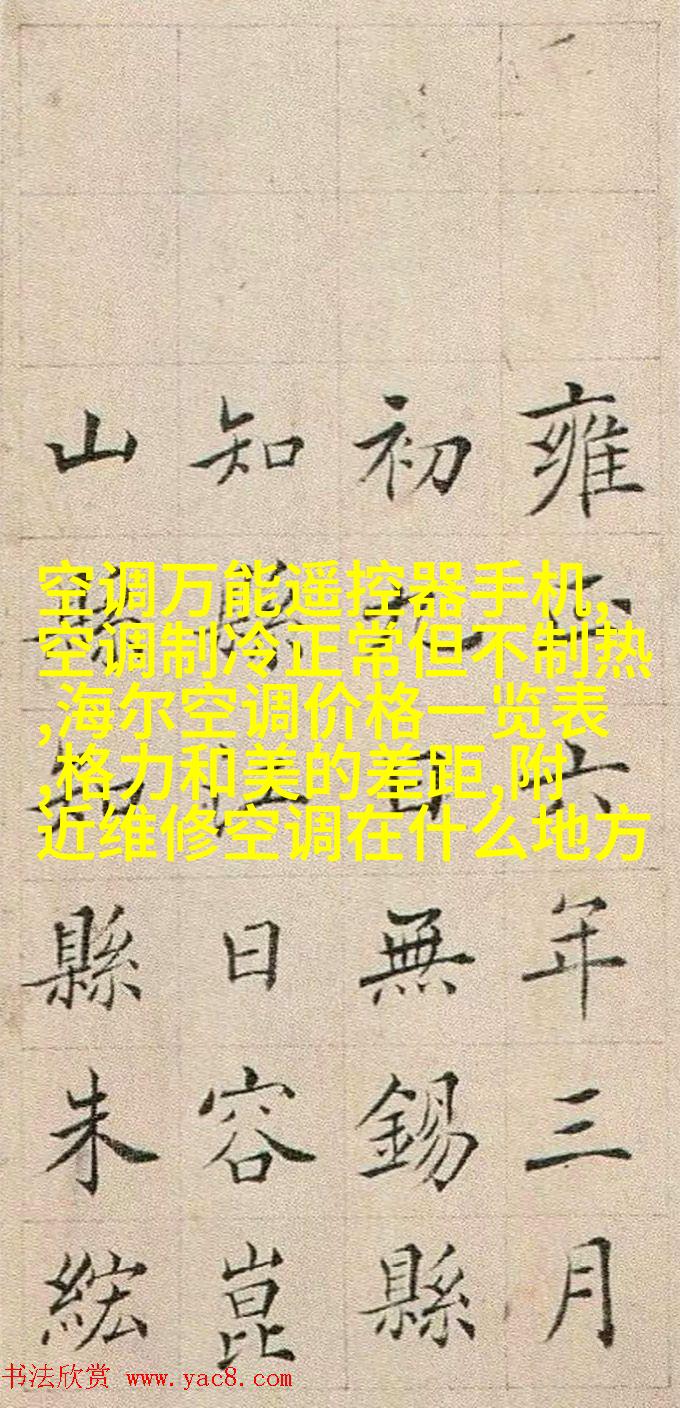 雍正六年三月
初九日無錫縣
知縣江日容崑
山縣知縣朱紘
空调万能遥控器手机,
空调制冷正常但不制热
,海尔空调价格一览表
,格力和美的差距,附
近维修空调在什么地方
书法欣赏 www.yac8.com